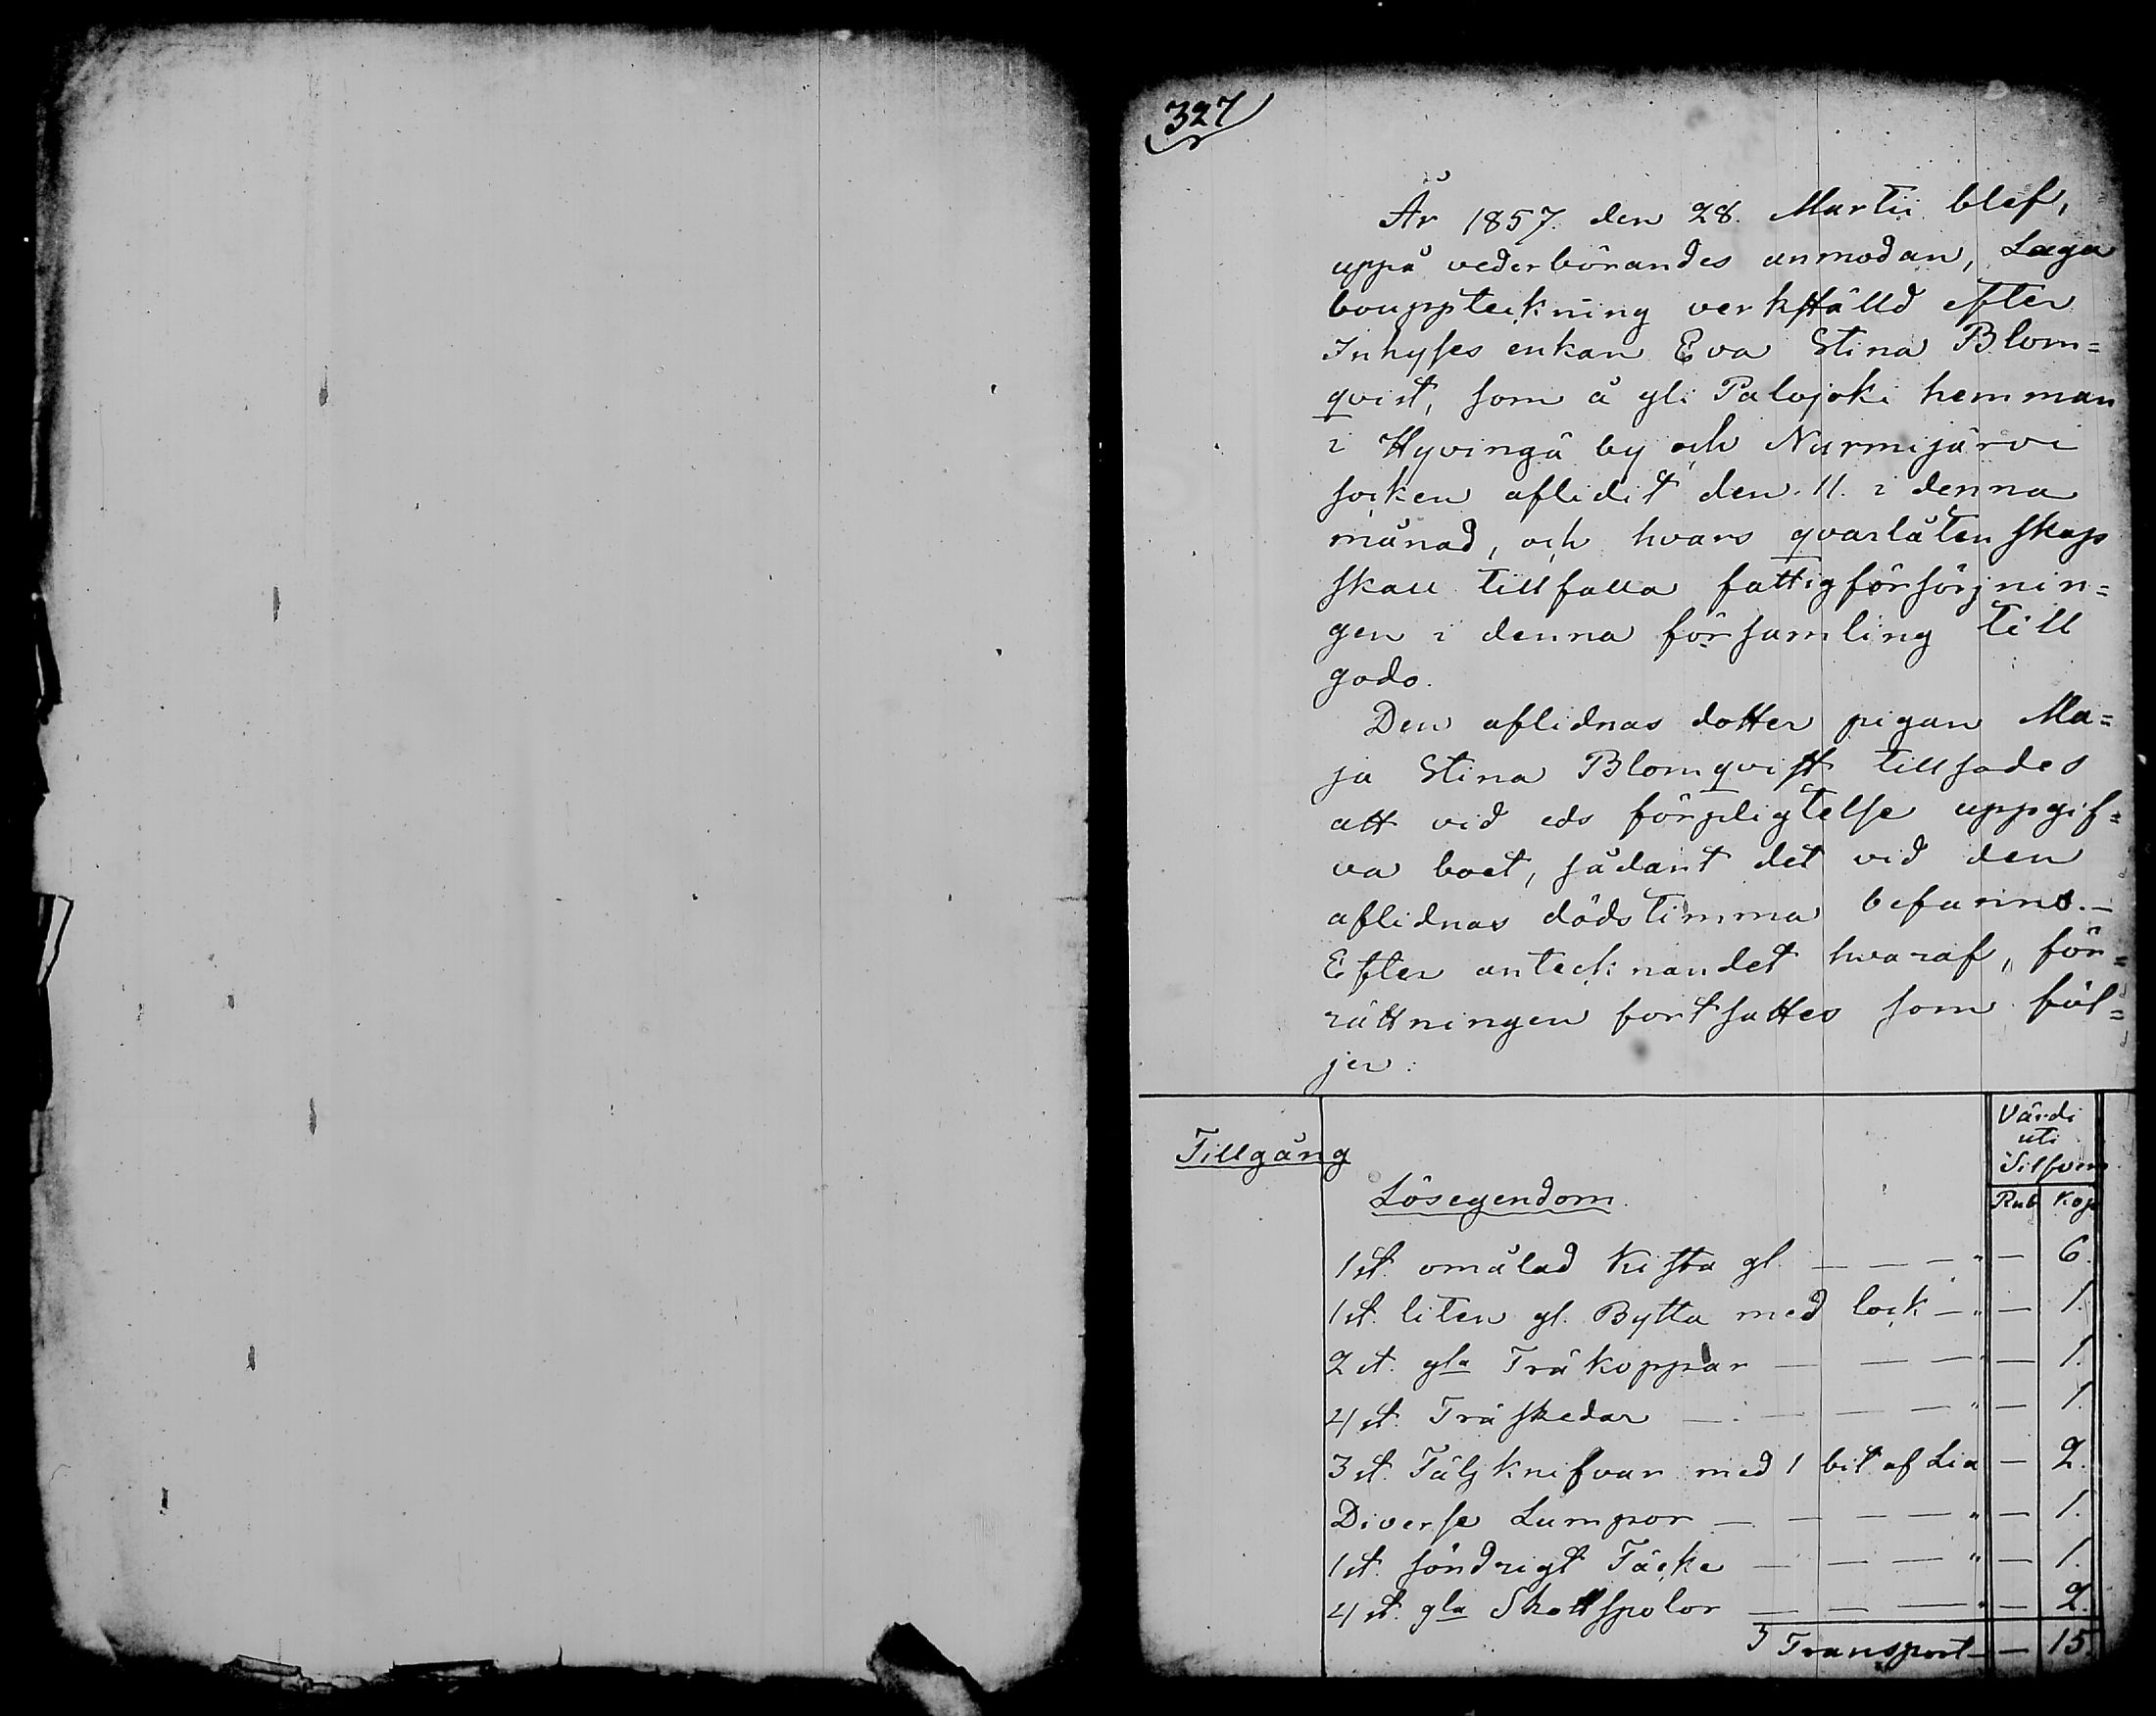 327
År 1857. den 28. Martii blef,
uppå vederbörandes anmodan, Laga
bouppteckning verkställd efter
Inhyses enkan Eva Stina Blom=
qvist, som å gli Palojoki hemman
i Hyvingä by och Nurmijärvi
socken aflidit den 11. i denna
månad, och hvars qvarlåtenskap
skall tillfalla fattigförsörjnin=
gen i denna församling till
godo.
Den aflidnas dotter pigan Ma=
ja Stina Blomqvist tillsades
att vid eds förpligtelse uppgif=
va boet, sådant det vid den
aflidnas dödstimma befanns.—
Efter antecknandet hvaraf, för=
rättningen fortsattes som föl=
jer:
Värdi
uti
Silfver
Tillgång
Lösegendom.
Rub Kop
1 st. omålad Kista gl. — — — " — 6.
1 st. liten gl. Bytta med lock — " — 1.
2 st. gla Träkoppar — — — " — 1.
4 st. Träskedar — — — — " — 1.
3 st. Täljknifvar med 1 bit af Lia — 2.
Diverse Lumpor — — — — " — 1.
1 st. söndrigt Täcke — — — " — 1.
4 st. gla Skottspolor — — — " — 2.
Transport — — 15.